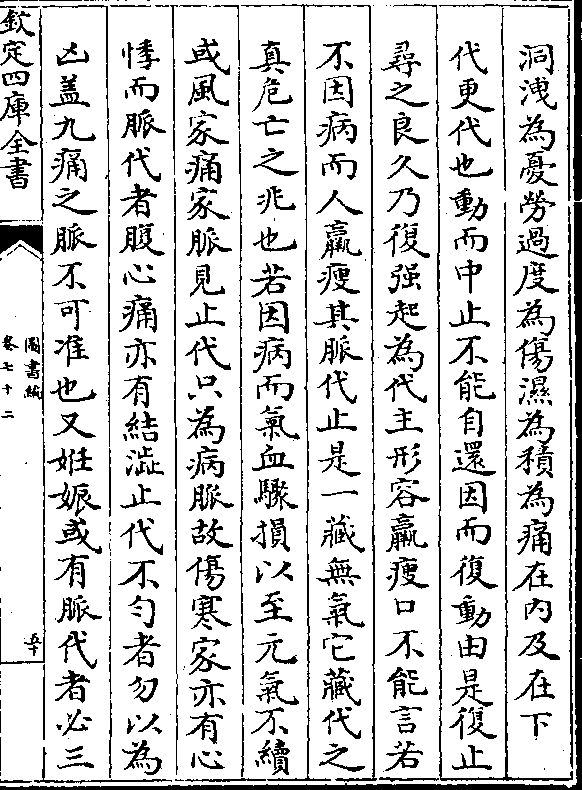 洞洩為憂勞過度為傷濕為積為痛在內及在下
代更代也動而中止不能自還因而復動由是復止
尋之良久乃復强起為代主形容羸瘦口不能言若
不因病而人羸瘦其脈代止是一藏無氣它藏代之
真危亡之兆也若因病而氣血驟損以至元氣不續
或風家痛家脈見止代只為病脈故傷寒家亦有心
悸而脈代者腹心痛亦有結澁止代不匀者勿以為
凶盖九痛之脈不可准也又姙娠或有脈代者必三
欽定四庫全書
圖書編
卷七十二
五十